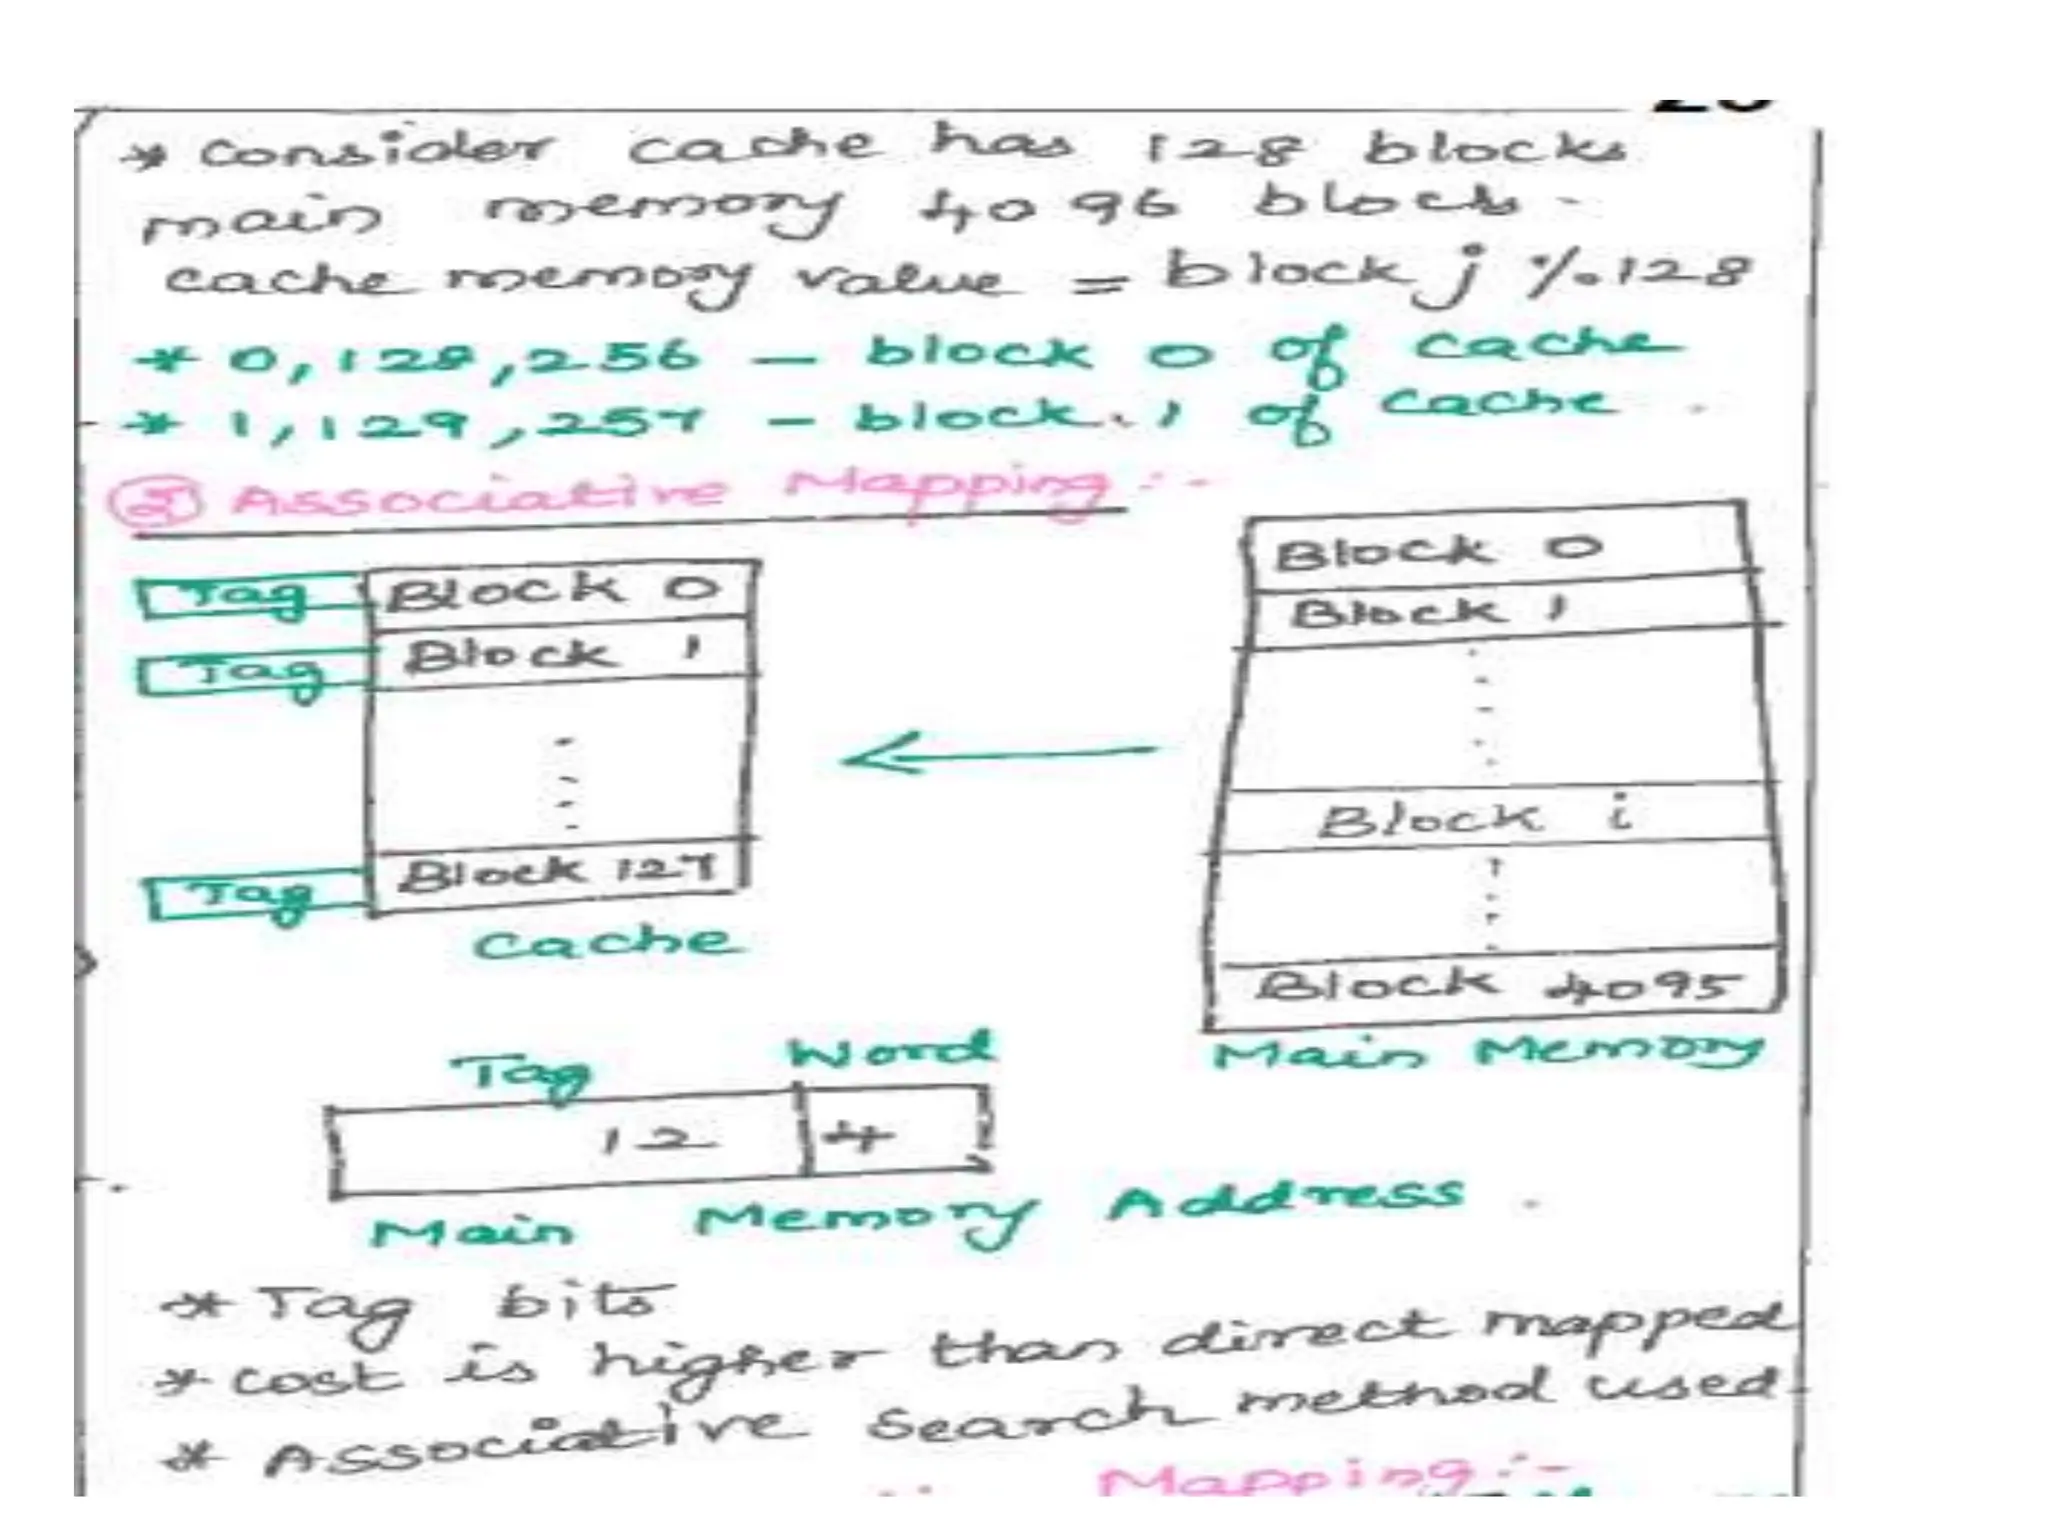 * consider cache has 128 blocks
main memory 4096 blocks.
cache memory value = block j % 128
* 0, 128, 256 - block 0 of cache
* 1, 129, 257 - block 1 of cache.
② Associative Mapping :-
Tag Block 0
Tag Block 1
Tag Block 127
cache
Block 0
Block 1
Block i
Block 4095
Main Memory
Tag Word
12 4
Main Memory Address.
* Tag bits
* cost is higher than direct mapped
* Associative search method used.
Mapping :-